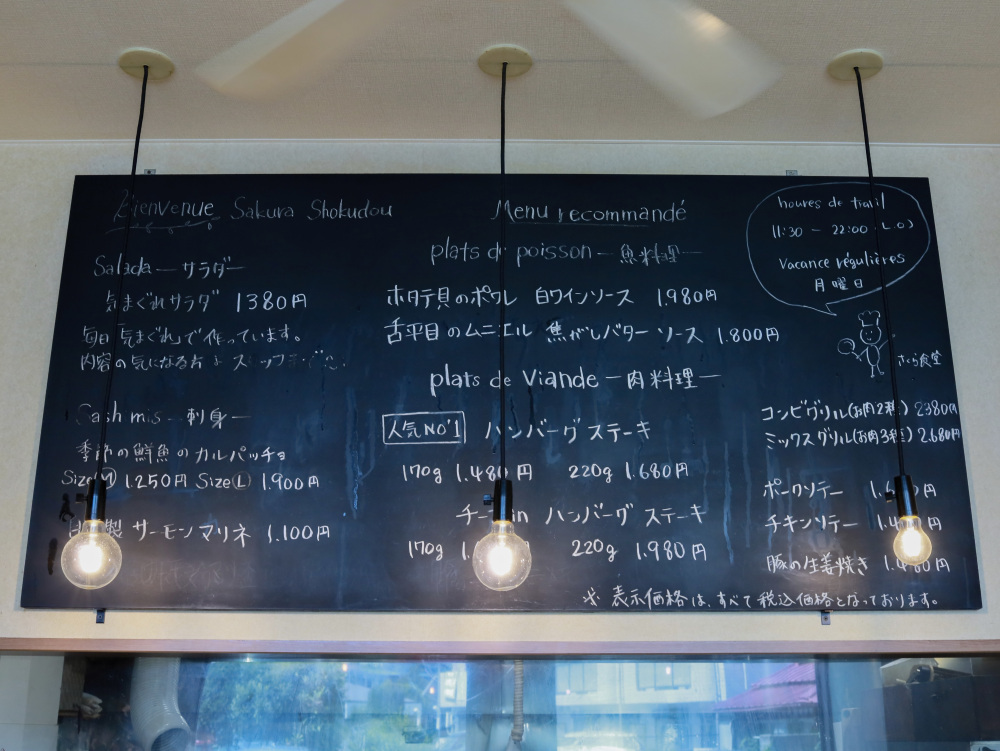 Bienvenue Sakura Shokudou
Salada — サラダ —
気まぐれサラダ 1380円
毎日 気まぐれで 作っています。
内容の気になる方は スタッフまで
Sashimis — 刺身 —
季節の鮮魚の カルパッチョ
SizeⓂ 1.250円 SizeⓁ 1.900円
自家製 サーモンマリネ 1.100円
Menu recommandé
plats de poisson — 魚料理 —
ホタテ貝のポワレ 白ワインソース 1.980円
舌平目のムニエル 焦がしバターソース 1.800円
plats de Viande — 肉料理 —
人気 NO'1 ハンバーグ ステーキ
170g 1.480円 220g 1.680円
ハンバーグ ステーキ
170g 220g 1.980円
houres de
11:30 — 22:00 (L.O)
Vacance régulières
月曜日
さくら食堂
コンビグリル(お肉2種) 2380円
ミックスグリル(お肉3種) 2.680円
ポークソテー
チキンソテー
豚の生姜焼き
※ 表示価格は、すべて 税込価格となっております。